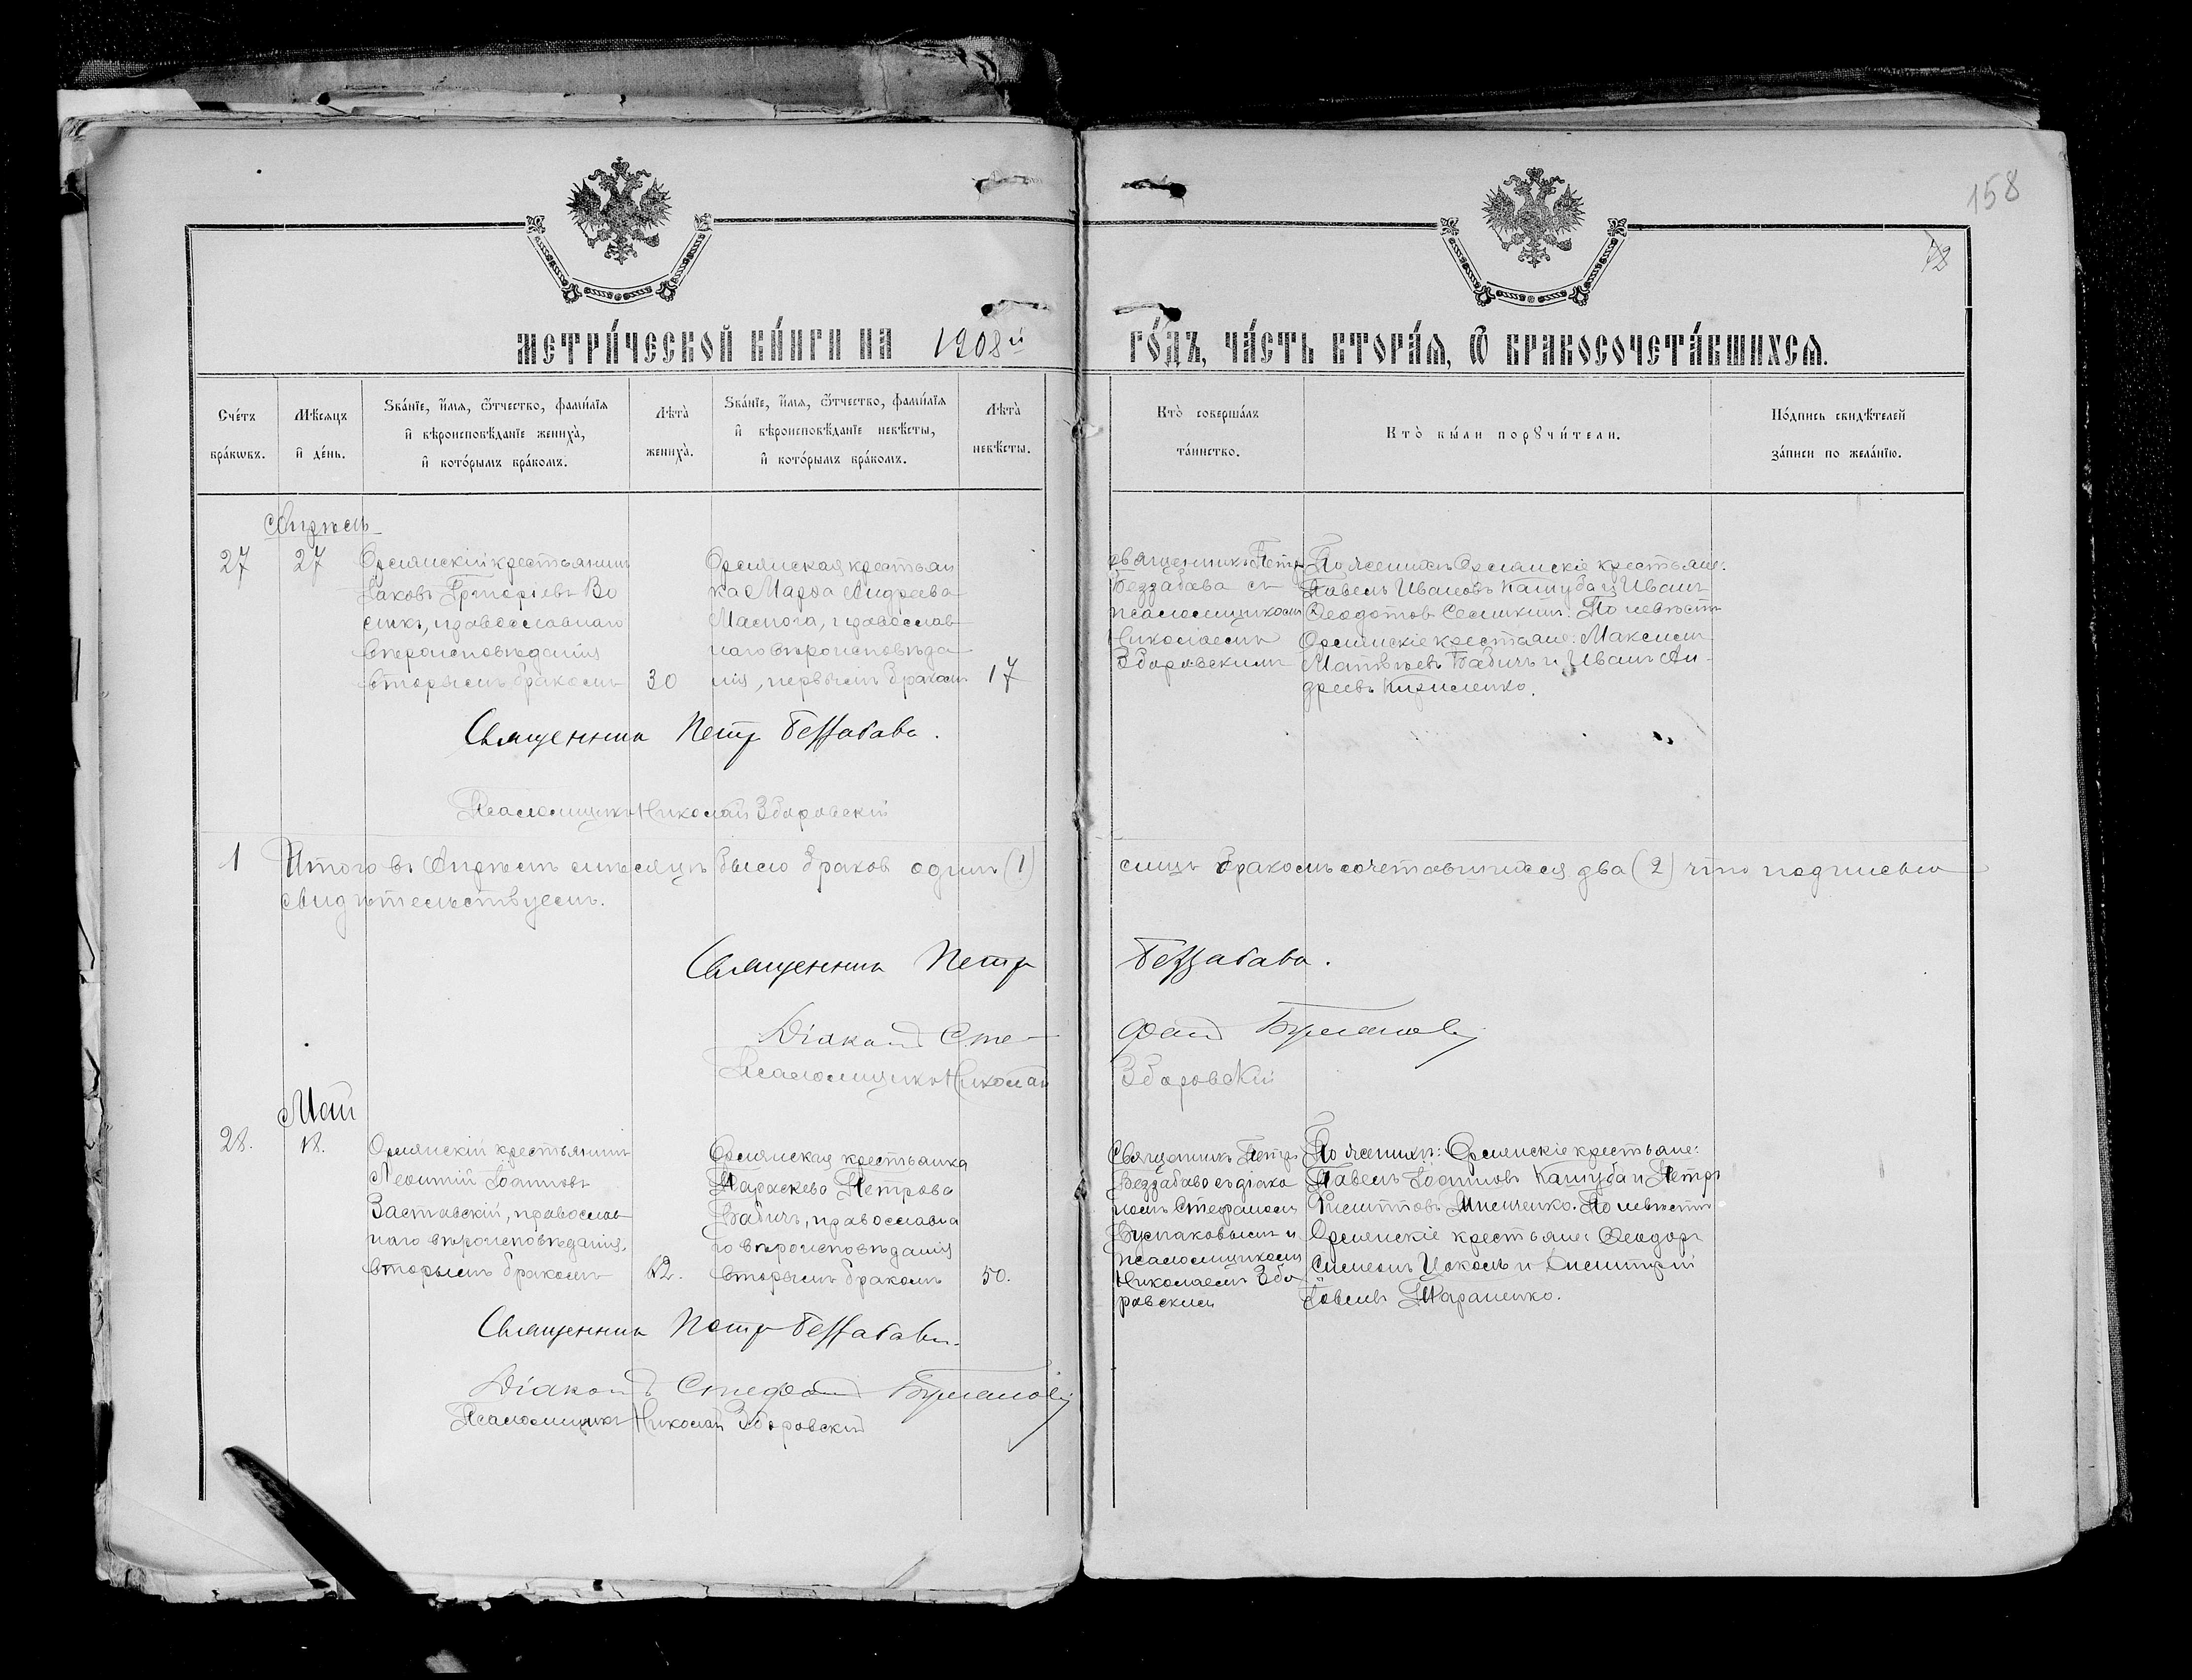 158
72
МЕТРИ́ЧЕСКОЙ КНИ́ГИ НА 1908й ГО́ДЪ, ЧА́СТЬ ВТОРА́Я, Ѿ БРАКОСОЧЕТА́ВШИХСЯ.
Сче́тъ бра́кѡвъ.
Мѣ́сяцъ и҆ де́нь.
Зва́нїе, и҆́мя, ѻ҆́тчество, фами́лїя
и҆ вѣроисповѣ́данїе жениха̀,
и҆ кото́рымъ бра́комъ.
Лѣта̀ жениха̀.
Зва́нїе, и҆́мя, ѻ҆́тчество, фами́лїя
и҆ вѣроисповѣ́данїе невѣ́сты,
и҆ кото́рымъ бра́комъ.
Лѣта̀ невѣ́сты.
Кто̀ соверша́лъ та́инство.
Кто̀ бы́ли порꙋчи́тели.
По́дпись свидѣ́телей
за́писи по жела́нїю.
Апрѣль
27
27
крестьянинъ
Іаковъ Григоріевъ Во
православнаго
вѣроисповѣданія
вторымъ бракомъ
30
крестьян
ка Марѳа Андреева
православ
наго вѣроисповѣда
нія, первымъ бракомъ
17
Священникъ Петръ
Беззабава съ
псаломщикомъ
Николаемъ
Зборовскимъ
По женихѣ крестьяне:
Павелъ Ивановъ Кашуба и Иванъ
Ѳеодотовъ По невѣстѣ
крестьяне: Максимъ
Матвѣевъ Бабичъ и Иванъ Ан-
дреевъ Кириленко.
Священникъ Петръ Беззабава.
Псаломщикъ Николай Зборовскій
1 Итого въ Апрѣлѣ мѣсяцѣ было браков один (1) лицъ бракомъ сочетавшихся два (2) что подписью
свидѣтельствуемъ.
Священникъ Петръ Беззабава.
Діаконъ Стефанъ
Псаломщикъ Николай Зборовскій
Май
28.
18.
крестьянинъ
Леонтій Іоанновъ
Заставскій, православ
наго вѣроисповѣданія,
вторымъ бракомъ
52.
крестьянка
Параскева Петрова
Бабичъ, православна
го вѣроисповѣданія
вторымъ бракомъ
50.
Священникъ Петръ
Беззабава съ діако
номъ Стефаномъ
и
псаломщикомъ
Николаемъ Збо
ровскимъ
По женихѣ: крестьяне:
Павелъ Іоанновъ Кашуба и Петръ
По невѣстѣ
крестьяне: Ѳеодоръ
и Димитрій
Тараненко.
Священникъ Петръ Беззабава.
Діаконъ Стефанъ
Псаломщикъ Николай Зборовскій